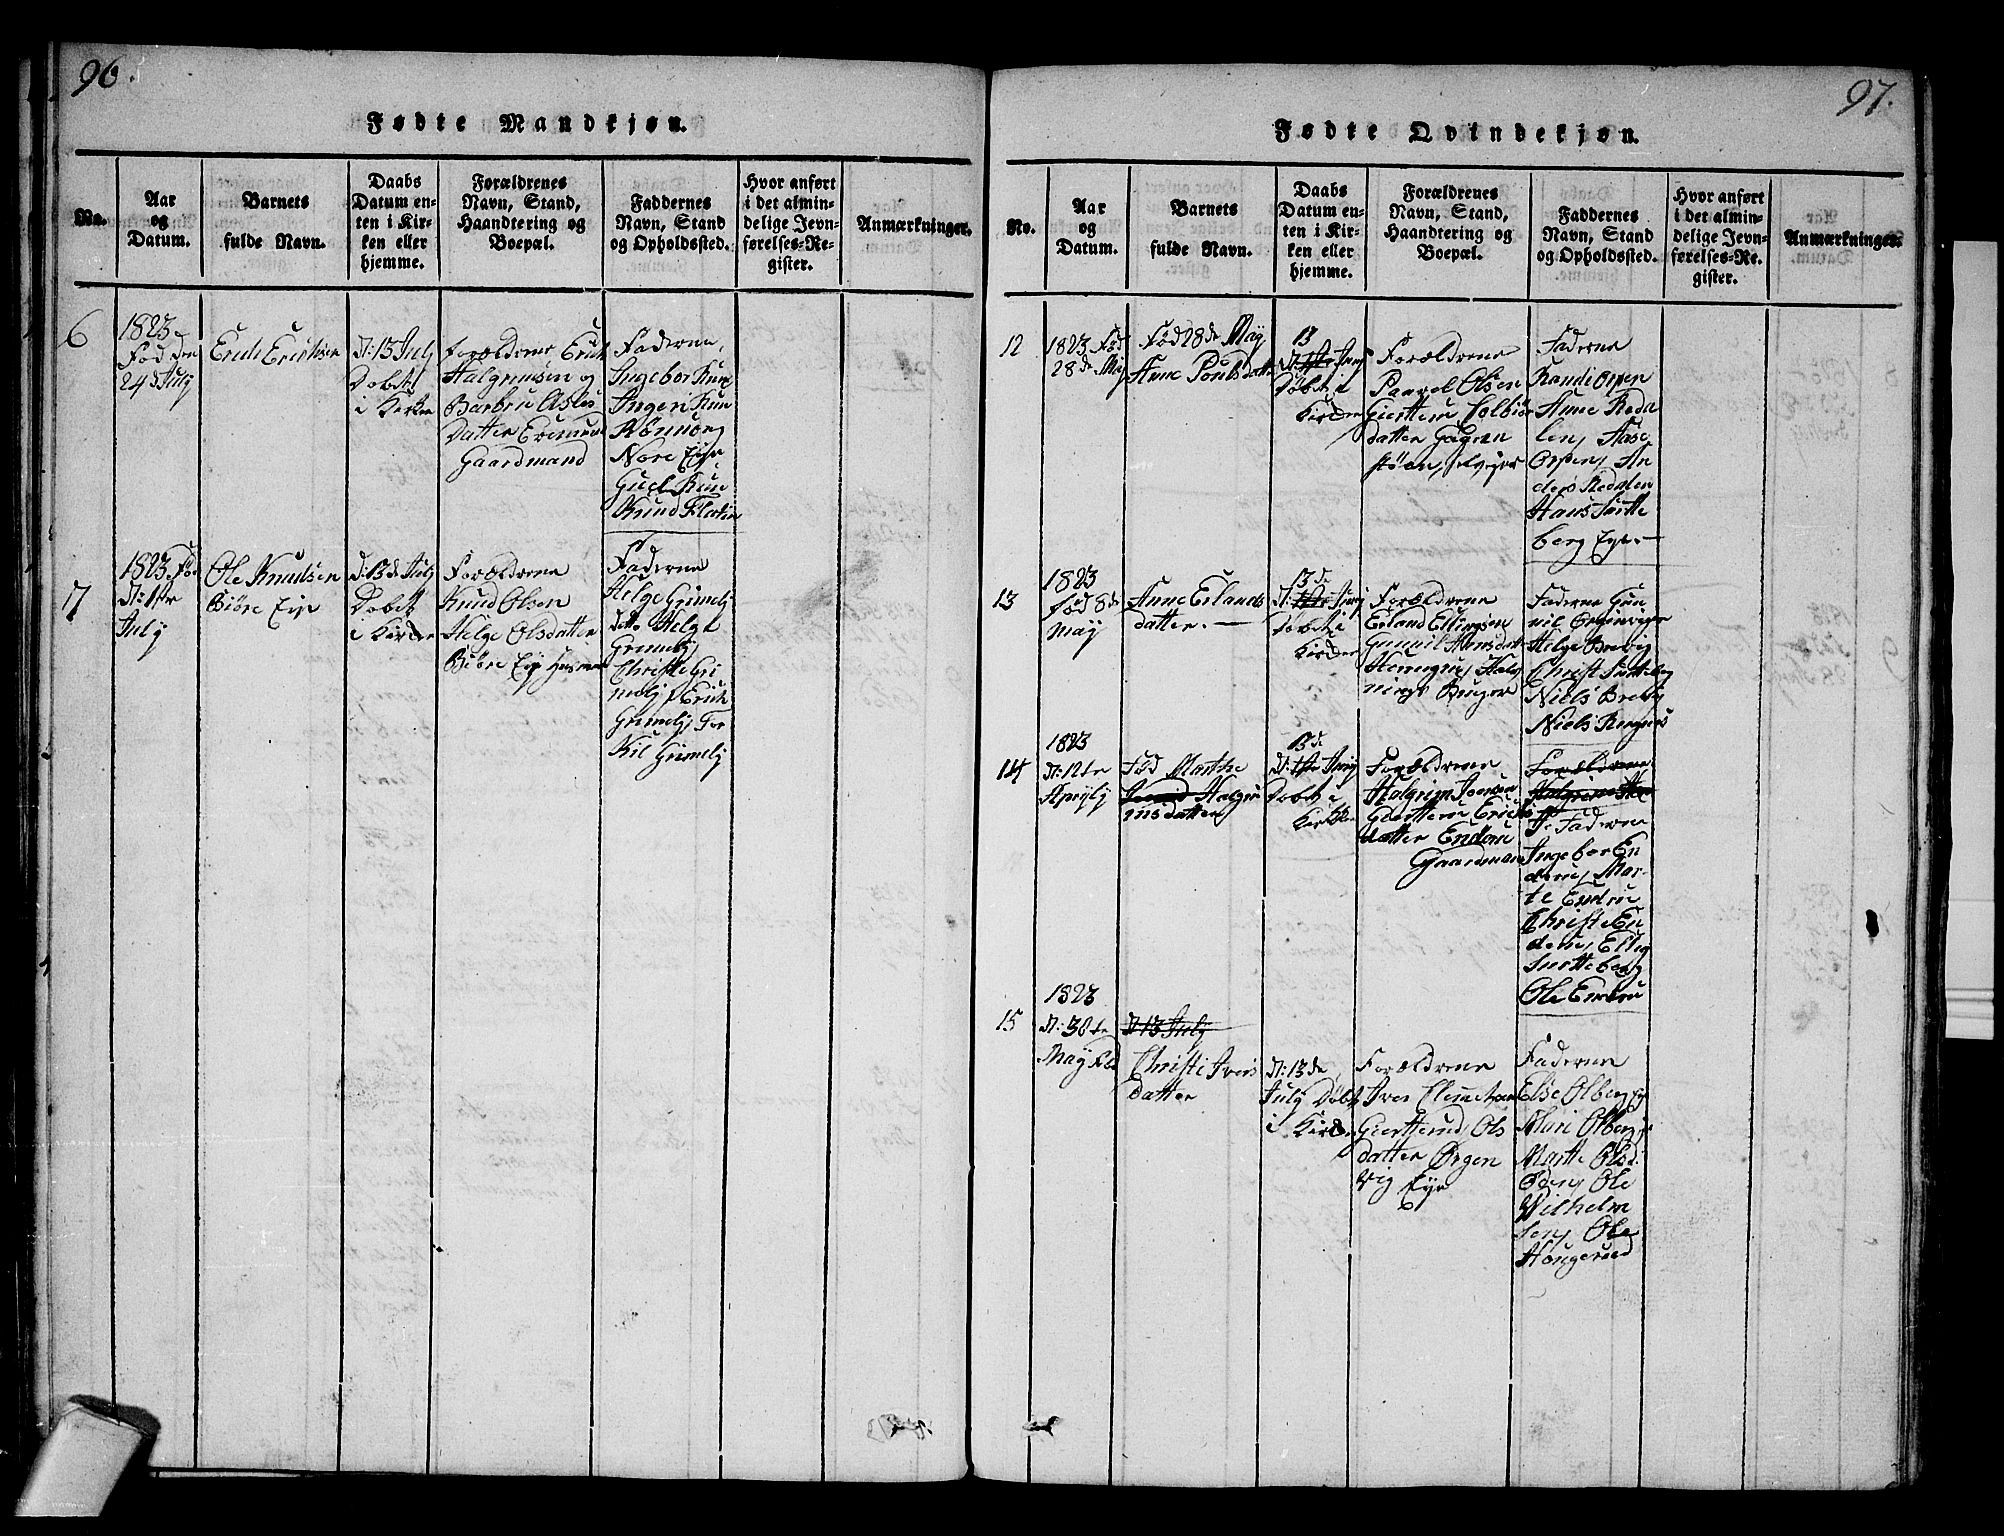 96.
Fødte Mandkjøn.
No.
Aar
og
Datum.
Barnets
fulde Navn.
Daabs
Datum en-
ten i Kir-
ken eller
hjemme.
Forældrenes
Navn, Stand,
Haandtering og
Boepæl.
Faddernes
Navn, Stand
og Opholdssted.
Hvor anført
i det almin-
delige Jevn-
førelses-Re-
gister.
Anmærkninger.
6
1823
Fød den
24de July
Erich Erichsen
d: 13 July
Døbt
i Kirken
Forældrene Erich
Halgrimsen og
Barbru Asles
Datter
Gaardmand
Faderne,
Ingebor Ruu
Ingeri Ruu
Rønnou
Nore Eye
Guel Ruu
Knud Flatin
17
1823 Fød
d: 1ste
July
Ole Knudsen
Biøre Eye
d: 13de July
Døbt
i Kirken
Forældrene
Knud Olsen
Helge Olsdatter
Biøre Eye Husmand
Faderne
Helge Grimelj
ditto Helge
Grimelj
Christie Gri
melj Erich
Grimelj Tor
Kil Grimelj
97.
Fødte Qvindekjøn.
No.
Aar
og
Datum.
Barnets
fulde Navn.
Daabs
Datum en-
ten i Kir-
ken eller
hjemme.
Forældrenes
Navn, Stand,
Haandtering og
Boepæl.
Faddernes
Navn, Stand
og Opholdssted.
Hvor anført
i det almin-
delige Jevn-
førelses-Re-
gister.
Anmærkninger.
12
1823 Fød
28de May
Fød 28de May
Anne Poulsdatter
13
July
Døbt i
Kirken
Forældrene
Paavel Olsen
Giertteru Tolbiør
datter Gagen
støen,
Faderne
Randi Orpen
Anne Reda
len, Aase
Orpen, An
ders Redalen
Hans Surtte
berg Eye
13
1823
fød 8de
May
Anne Erlands
datter.
13de
d: July
Døbt i
Kirken
Forældrene
Erland Ellingsen
Gunnil Hansdatter
Faderne Gun
nil
Helge Brevig
Christi Surtteberg
Niels Brevig
Niels Ragnes
14
1823
d: 12te
Aprily
Fød Marthe
Halgri
msdatter
13de
d: July
Døbt i
Kirken
Forældrene
Halgrim Joensen
Giertteru Erichs
datter Enderu
Gaardmand
Forældrene
Halgrim
Faderne
Ingebor En
deru, Mar
te Enderu
Christi En
deru, Elling
Surtteberg
Ole Enderu
15
1823
d: 30te
May Fød
d 13 July
Christi Ivers
datter
d: 13de,
July Døbt
i Kirken
Forældrene
Iver Clemetsen
Gierttrud Ols
datter Ørgen
vig Eye
Faderne
Else Olberg Eye
Mari Olberg
Marthe Olsd:
Ole
Wilhelm
sen, Ole
Hougerud